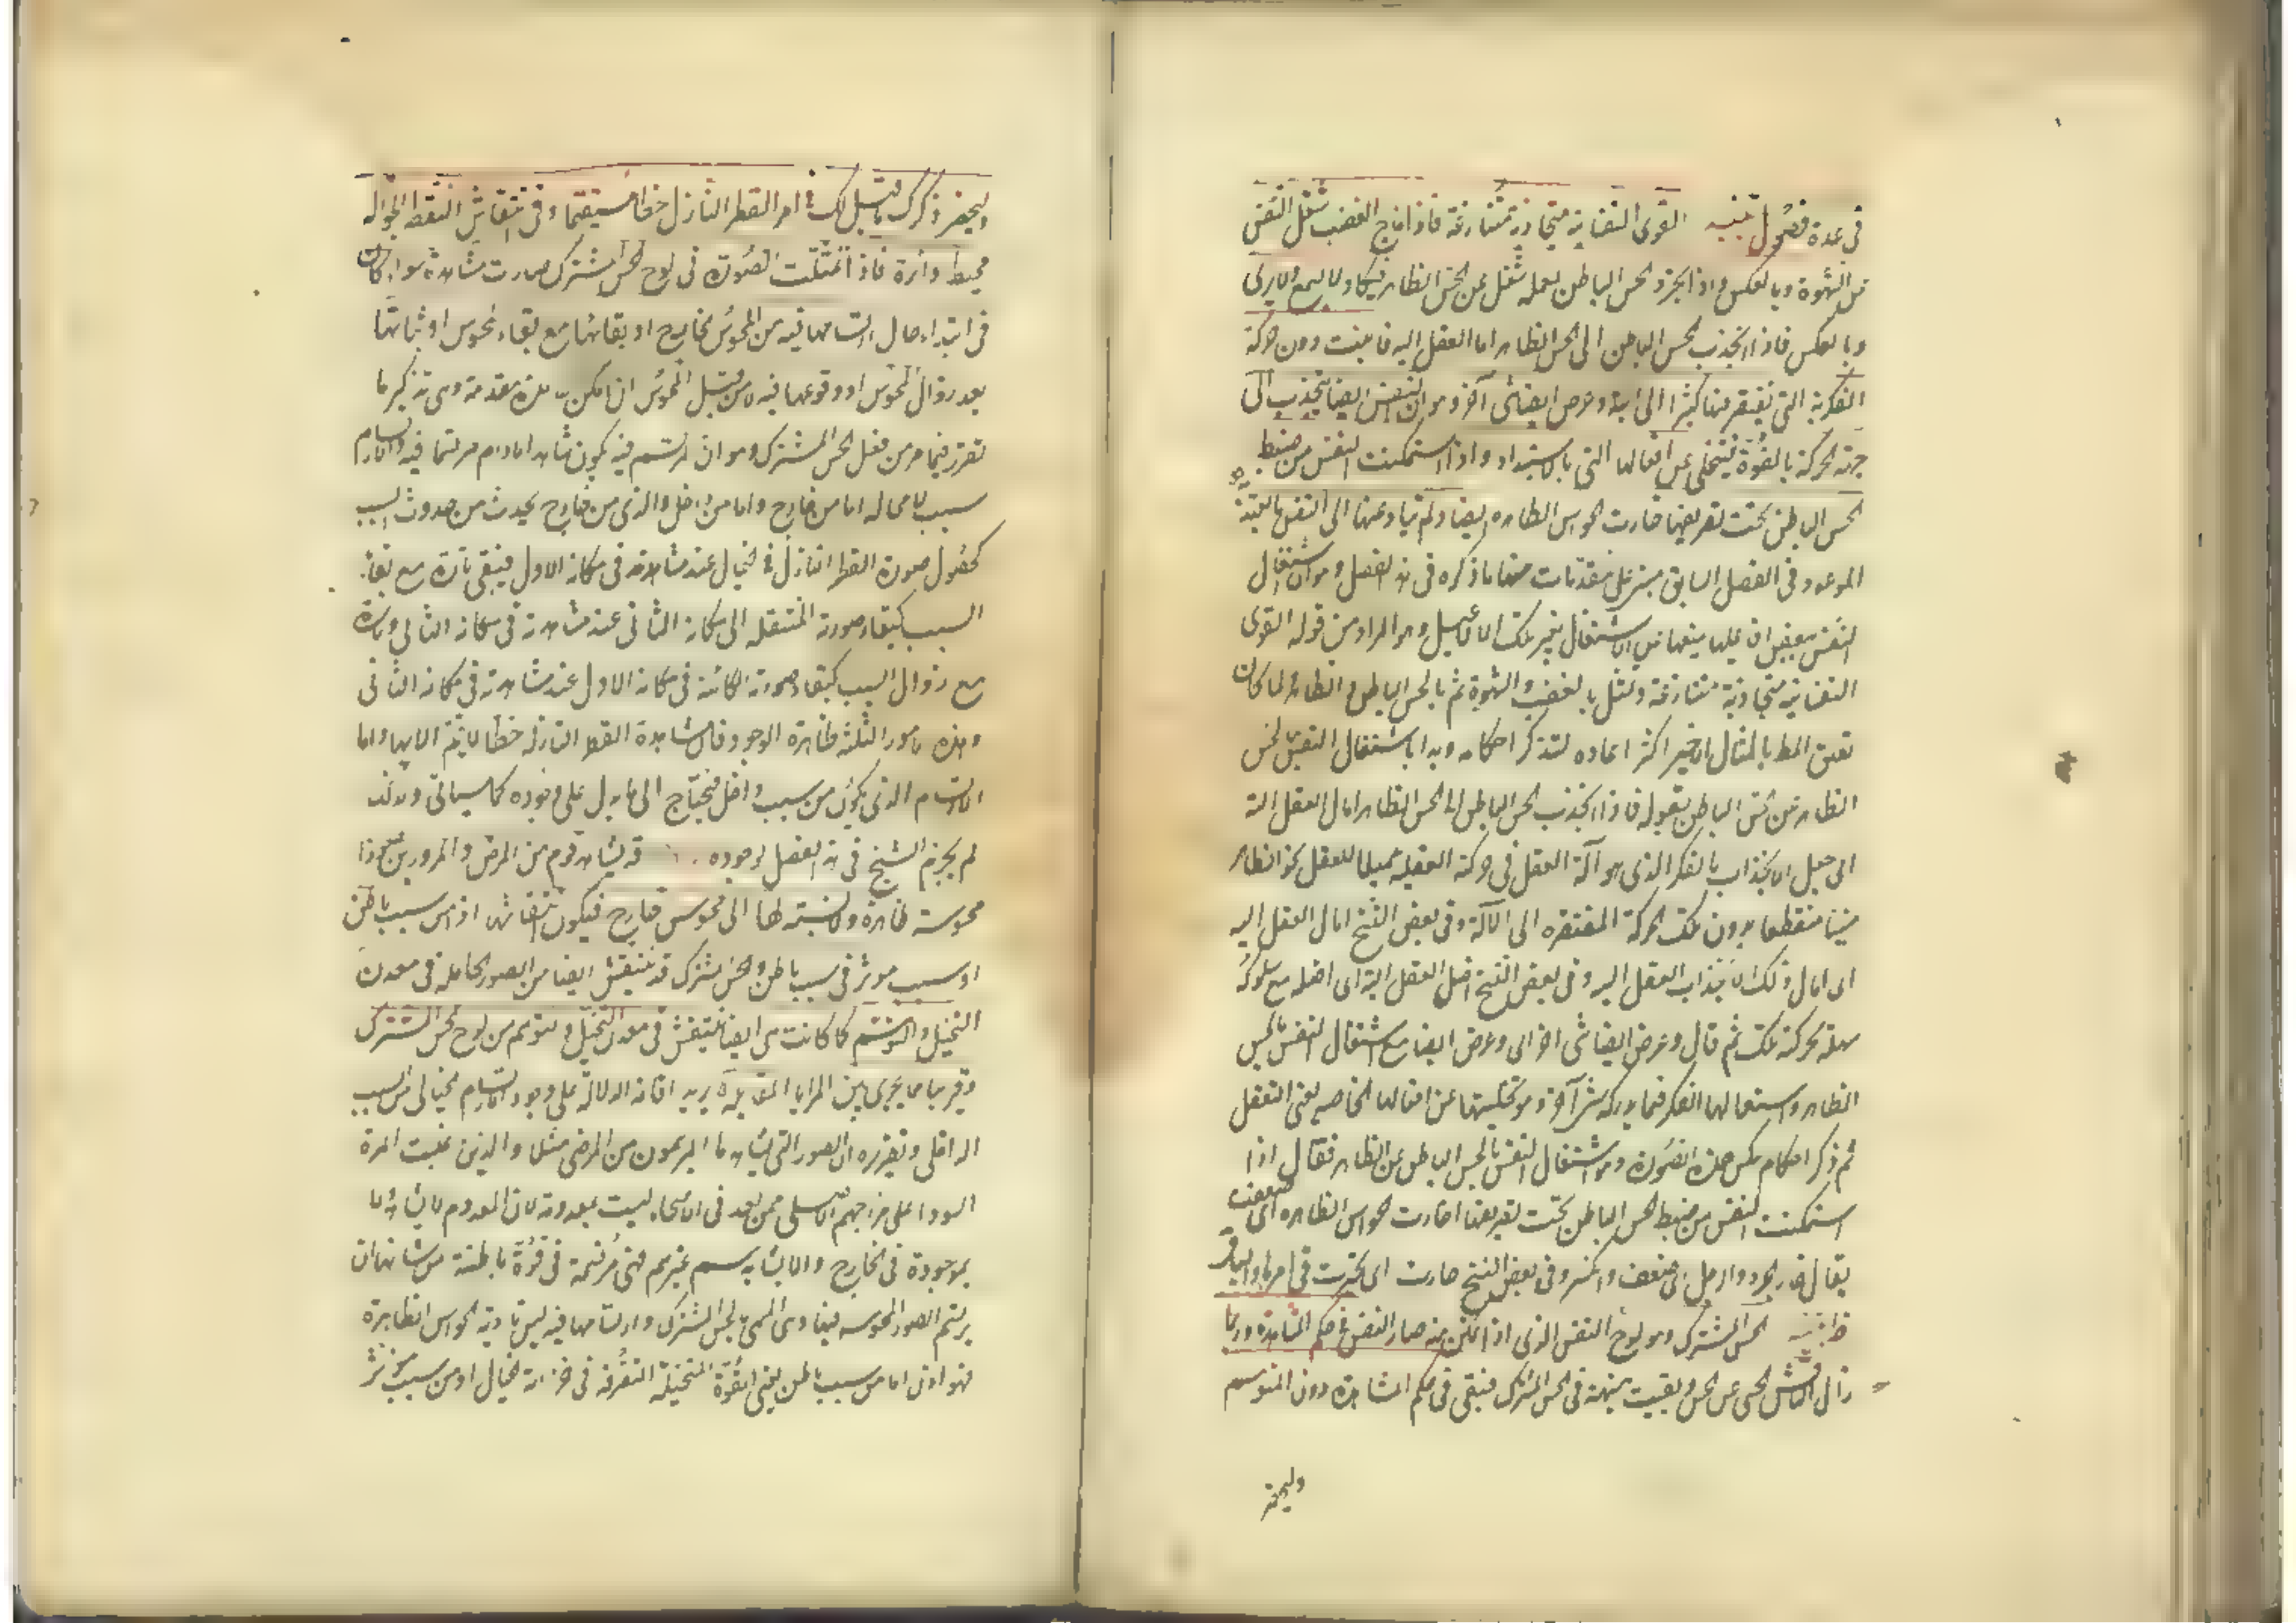 في عدة فصول تنبيه القوى النفسانية متجاذبة متنازعة فاذا هاج الغضب شغل النفس
عن الشهوة وبالعكس واذا تجرد الحس الباطن لعمله شغل عن الحس الظاهر فيكاد لا يسمع ولا يرى
وبالعكس فاذا انجذب الحس الباطن الى الحس الظاهر اما العقل اليه فانبتت دون حركة
الفكرية التي تفتقر فيها كثيرا الى آلته وعرض ايضا شئ آخر وهو ان النفس ايضا تنجذب الى
جهة الحركة بالقوة فتتخلى عن افعالها التي بالاستبداد واذا استمكنت النفس من ضبط
الحس الباطن تحت تصريفها خارت الحواس الظاهره ايضا ولم يتأد عنها الى النفس ما يعتد به
الموعود في الفصل السابق مبني على مقدمات منها ما ذكره في هذا الفصل وهو ان اشتغال
النفس ببعض افاعيلها يمنعها عن الاشتغال بغير تلك الافاعيل وهو المراد من قوله القوى
النفسانية متجاذبة متنازعة وتمثل بالغضب والشهوة ثم بالحس الباطن والظاهر ولما كان
تعلق المط بالمثال الاخير اكثر اعاده لتذكر احكامه وبدا باشتغال النفس بالحس
الظاهر عن الحس الباطن بقوله فاذا انجذب الحس الباطن الى الحس الظاهر امال العقل آلته
اى جعل الانجذاب بالفكر الذي هو آلة العقل في حركته العقلية مميلا للعقل نحو الظاهر
منبتا منقطعا بدون تلك الحركة المفتقره الى الآلة وفي بعض النسخ امال العقل اليه
اى امال ذلك الانجذاب العقل اليه وفي بعض النسخ اضل العقل آلته اى اضله مع سلوكه
سبيله بحركته تلك ثم قال وعرض ايضا شئ آخر اى وعرض ايضا مع اشتغال النفس بالحس
الظاهر واستعمالها الفكر فيما يدركه شئ آخر وهو تخليتها عن افعالها الخاصه يعنى التعقل
ثم ذكر احكام عكس هذه الصورة وهو اشتغال النفس بالحس الباطن عن الظاهر فقال اذا
استمكنت النفس من ضبط الحس الباطن تحت تصريفها خارت الحواس الظاهره اى ضعفت
يقال خار الحر والرجل اى ضعف وانكسر وفي بعض النسخ حارت اى تحيرت في امرها والباقى
ظاهر تنبيه الحس المشترك وهو لوح النقش الذي اذا تمكن منه صار النقش في حكم المشاهد وربما
زال الناقش الحسى عن الحس وبقيت هيئته في الحس المشترك فتبقى في حكم المشاهدة دون المتوهم
وليحضر
وليحضر ذكرك ما قيل لك في امر القطر النازل خطا مستقيما وفي انتقاش النقطة الجوالة
محيط دائرة فاذا تمثلت الصورة في لوح الحس المشترك صارت مشاهدة سواء كان
في ابتداء حال ارتسامها فيه من المحسوس الخارج او بقائها مع بقاء المحسوس او ثباتها
بعد زوال المحسوس او وقوعها فيه لا من قبل المحسوس ان امكن هذه مقدمة وهى تذكير ما
تقرر فيما مر من فعل الحس المشترك وهو ان المرتسم فيه يكون مشاهدا مادام مرتسما فيه وللارتسام
سبب لا محاله اما من خارج واما من داخل والذي من خارج يحدث من حدوث السبب
كحصول صورة القطر النازل في الخيال عند مشاهدته في مكانه الاول فيبقى تارة مع بقاء
السبب كبقاء صورته المنتقله الى مكانه الثانى عند مشاهدته في مكانه الثانى وتارة
مع زوال السبب كبقاء صورته الكائنة في مكانه الاول عند مشاهدته في مكانه الثانى
وهذه الامور الثلثة ظاهرة الوجود فان مشاهدة القطر النازل خطا لا يتم الا بها واما
الارتسام الذي يكون من سبب داخل فيحتاج الى ما يدل على وجوده كما سيأتى ولذلك
لم يجزم الشيخ في هذا الفصل بوجوده قد يشاهد قوم من المرضى والممرورين صورا
محسوسة ظاهرة ولا نسبة لها الى محسوس خارج فيكون انتقاشها اذا من سبب باطن
او سبب مؤثر في سبب باطن والحس المشترك قد ينتقش ايضا من الصور الحاملة في معدن
التخيل والتوهم كما كانت هى ايضا تنتقش في معدن التخيل والتوهم من لوح الحس المشترك
وقريبا مما يجرى بين المرايا المتقابلة يريد اقامة الدلالة على وجود ارتسام خيالى من السبب
الداخلى وتقريره ان الصور التي يشاهدها المبرسمون من المرضى مثلا والذين غلبت المرة
السودا على مزاجهم الاصلى ممن يعد في الاصحاء ليست بمعدومة لان المعدوم لا يشاهد ولا
بموجودة في الخارج والا لشاهده غيرهم فهى مرتسمة في قوة باطنة من شانها ان
يرتسم الصور المحسوسة فيها وهى المسمى بالحس المشترك وارتسامها فيه ليس بتادية الحواس الظاهرة
فهو اذن اما من سبب باطن يعنى القوة المتخيلة المتصرفة في خزانة الخيال او من سبب مؤثر